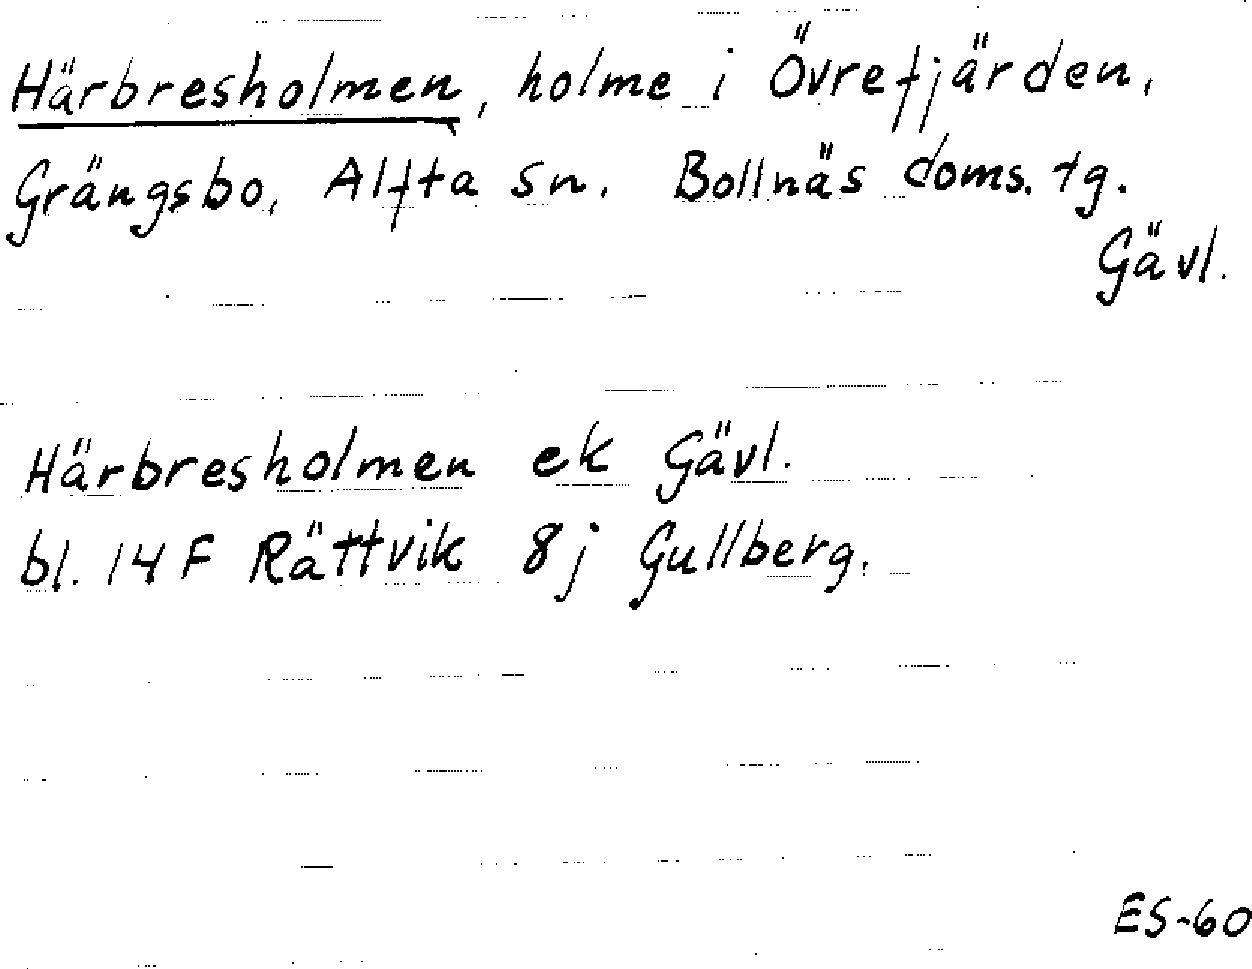 Härbresholmen, holme i Övrefjärden,
Grängsbo, Alfta sn. Bollnäs doms. tg.
Gävl.
Härbresholmen ek Gävl.
bl. 14 F Rättvik 8j Gullberg.
ES-60